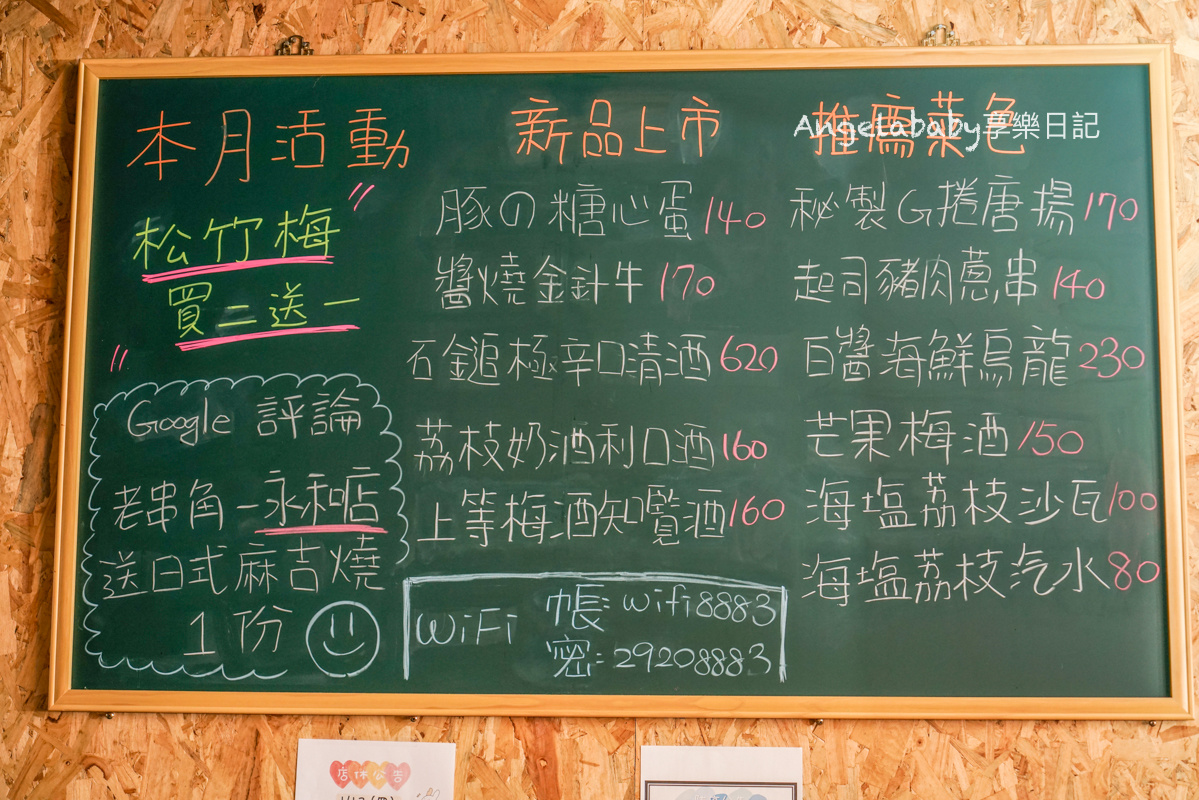 本月活動
"松竹梅
買二送一"
Google 評論
老串角-永和店
送日式麻吉燒
1份
新品上市
豚の糖心蛋140
醬燒金針牛170
石鎚極辛口清酒620
荔枝奶酒利口酒160
上等梅酒知覧酒160
WiFi
帳:wifi8883
密:29208883
推薦菜色
Angelababy享樂日記
秘製G捲唐揚170
起司豬肉蔥串140
白醬海鮮烏龍230
芒果梅酒150
海塩荔枝沙瓦100
海塩荔枝汽水80
店休公告